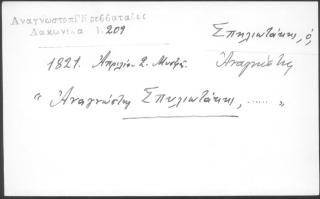 ἈναγνωστοπΓΚρεββαταίες
Λακωνικὰ 1.209
Σπηλιωτάκης, ὁ,
1821. Ἀπριλίου 2. Μυστρᾶς. Ἀναγνώστης
" Ἀναγνώστης Σπηλιωτάκης, ...... "